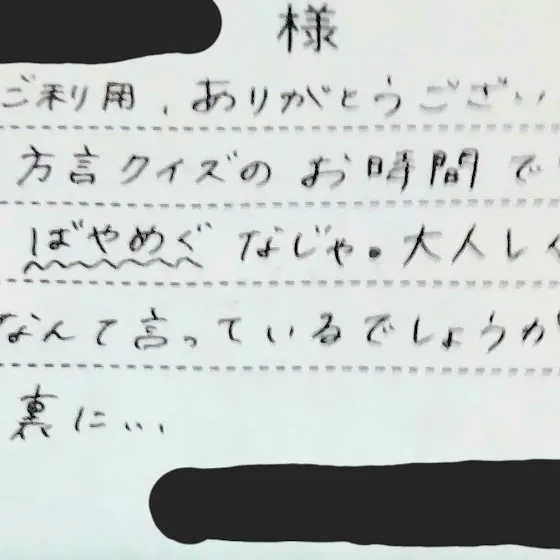 様
ご利用、ありがとうござい
方言クイズのお時間で
ばやめぐなじゃ。大人しく
なんて言っているでしょうか
裏に...